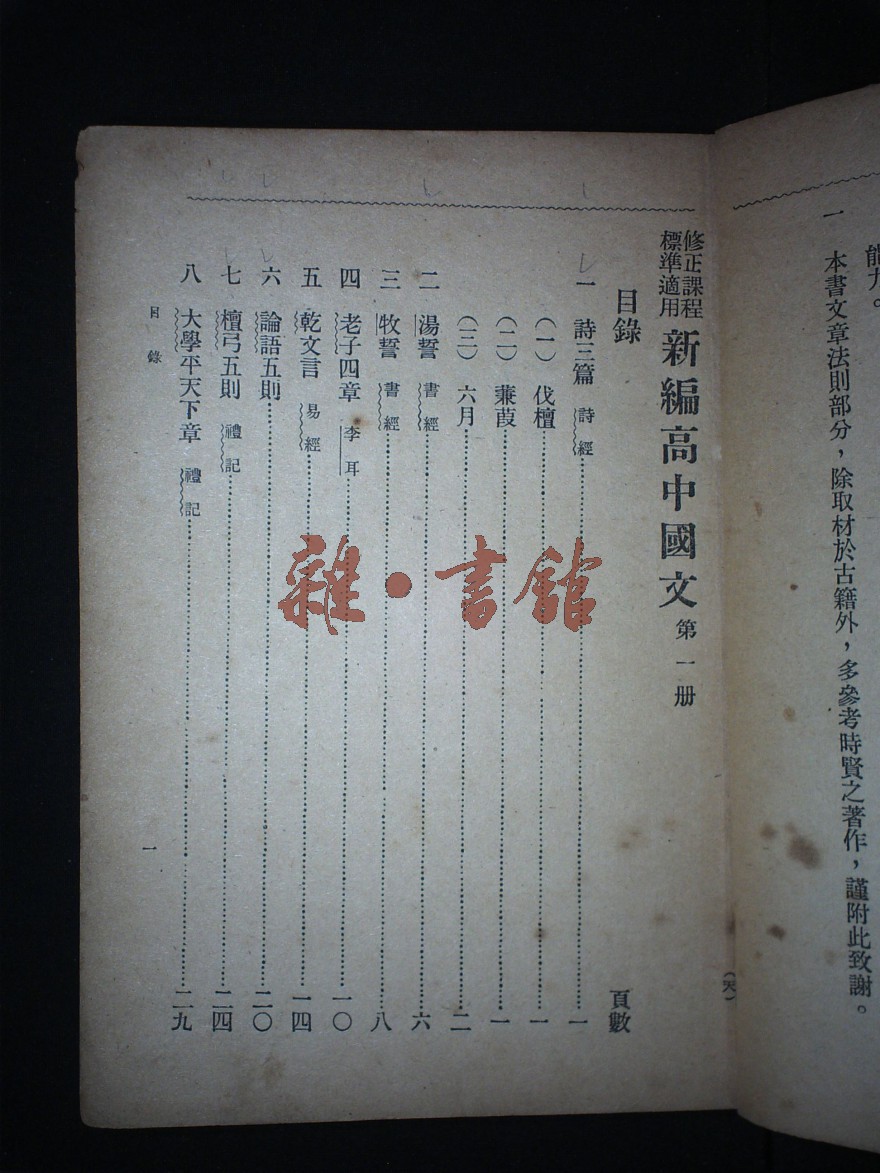 能力。
一　本書文章法則部分，除取材於古籍外，多參考時賢之著作，謹附此致謝。
修正課程標準適用 新編高中國文 第一册
目錄 頁數
一 詩三篇 詩經 一
（一） 伐檀 一
（二） 蒹葭 一
（三） 六月 二
二 湯誓 書經 六
三 牧誓 書經 八
四 老子四章 李耳 一〇
五 乾文言 易經 一四
六 論語五則 二〇
七 檀弓五則 禮記 二四
八 大學平天下章 禮記 二九
目錄 一
雜·書館